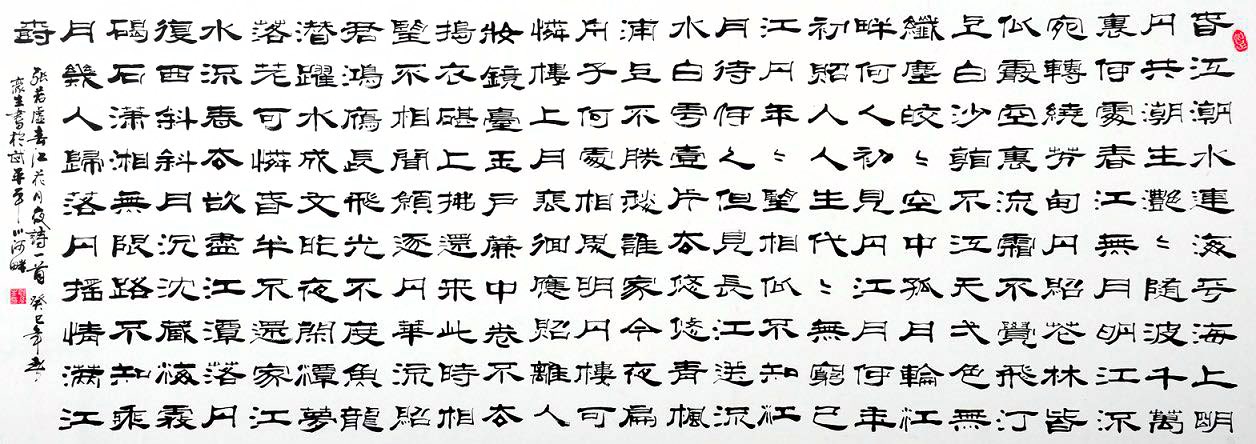 春江潮水連海平海上明
月共潮生灩〻隨波千萬
裏何處春江無月明江流
宛轉繞芳甸月照花林皆
似霰空裏流霜不覺飛汀
上白沙看不江天弌色無
纖塵皎〻空中孤月輪江
畔何人初見月江月何年
初照人人生代〻無窮已
江月年〻望相似不知江
月待何人但見長江送流
水白雲壹片去悠悠青楓
浦上不勝愁誰家今夜扁
舟子何處相思明月樓可
憐樓上月裴徊應照離人
妝鏡臺玉戶簾中卷不去
搗衣砧上拂還來此時相
望不相聞願逐月華流照
君鴻雁長飛光不度魚龍
潛躍水成文昨夜閑潭夢
落花可憐春半不還家江
水流春去欲盡江潭落月
復西斜斜月沉沈藏海霧
碣石瀟湘無限路不知乘
月幾人歸落月搖情滿江
樹
張若虛春江花月夜詩一首 癸巳年
生書於 河畔